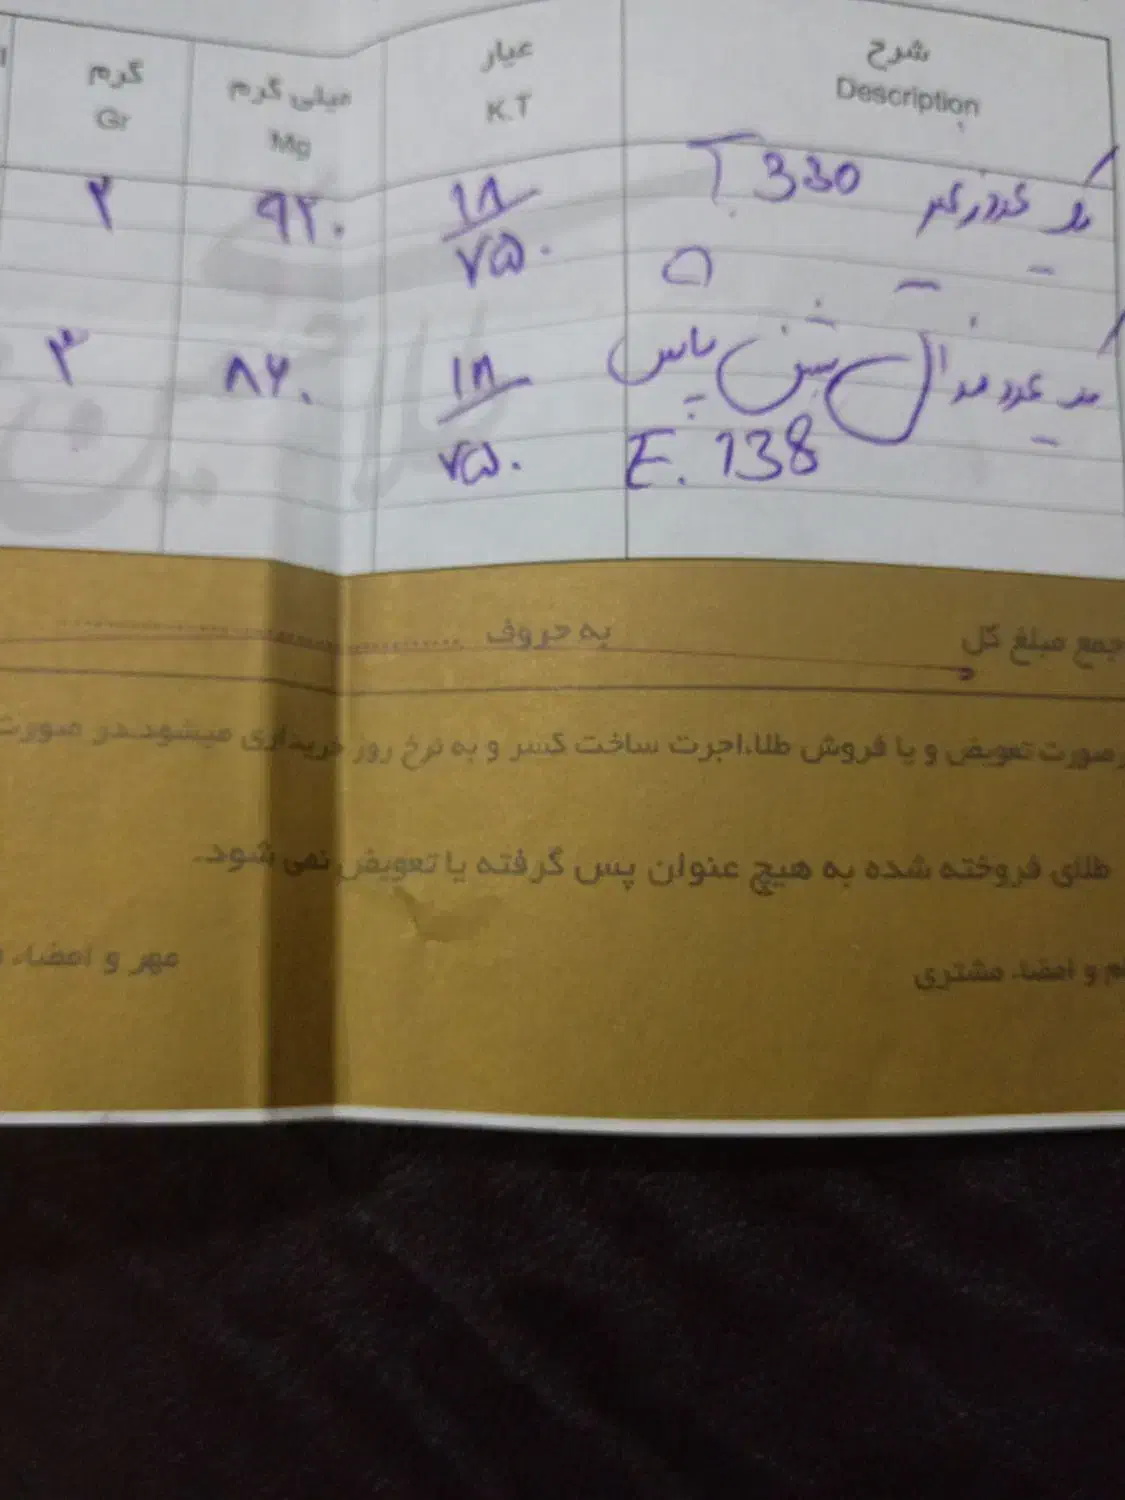 شرح عیار میلی گرم گرم
Description K.T Mg Gr
یک عدد زنجیر T. 330 ۱۸ ۹۲۰ ۲
۷۵۰
یک عدد مدال ۱۸ ۸۶۰ ۳
E. 138 ۷۵۰
جمع مبلغ کل به حروف
صورت تعویض و یا فروش طلا،اجرت ساخت کسر و به نرخ روز خریداری میشود.در صورت
طلای فروخته شده به هیچ عنوان پس گرفته یا تعویض نمی شود.
و امضاء مشتری مهر و امضاء